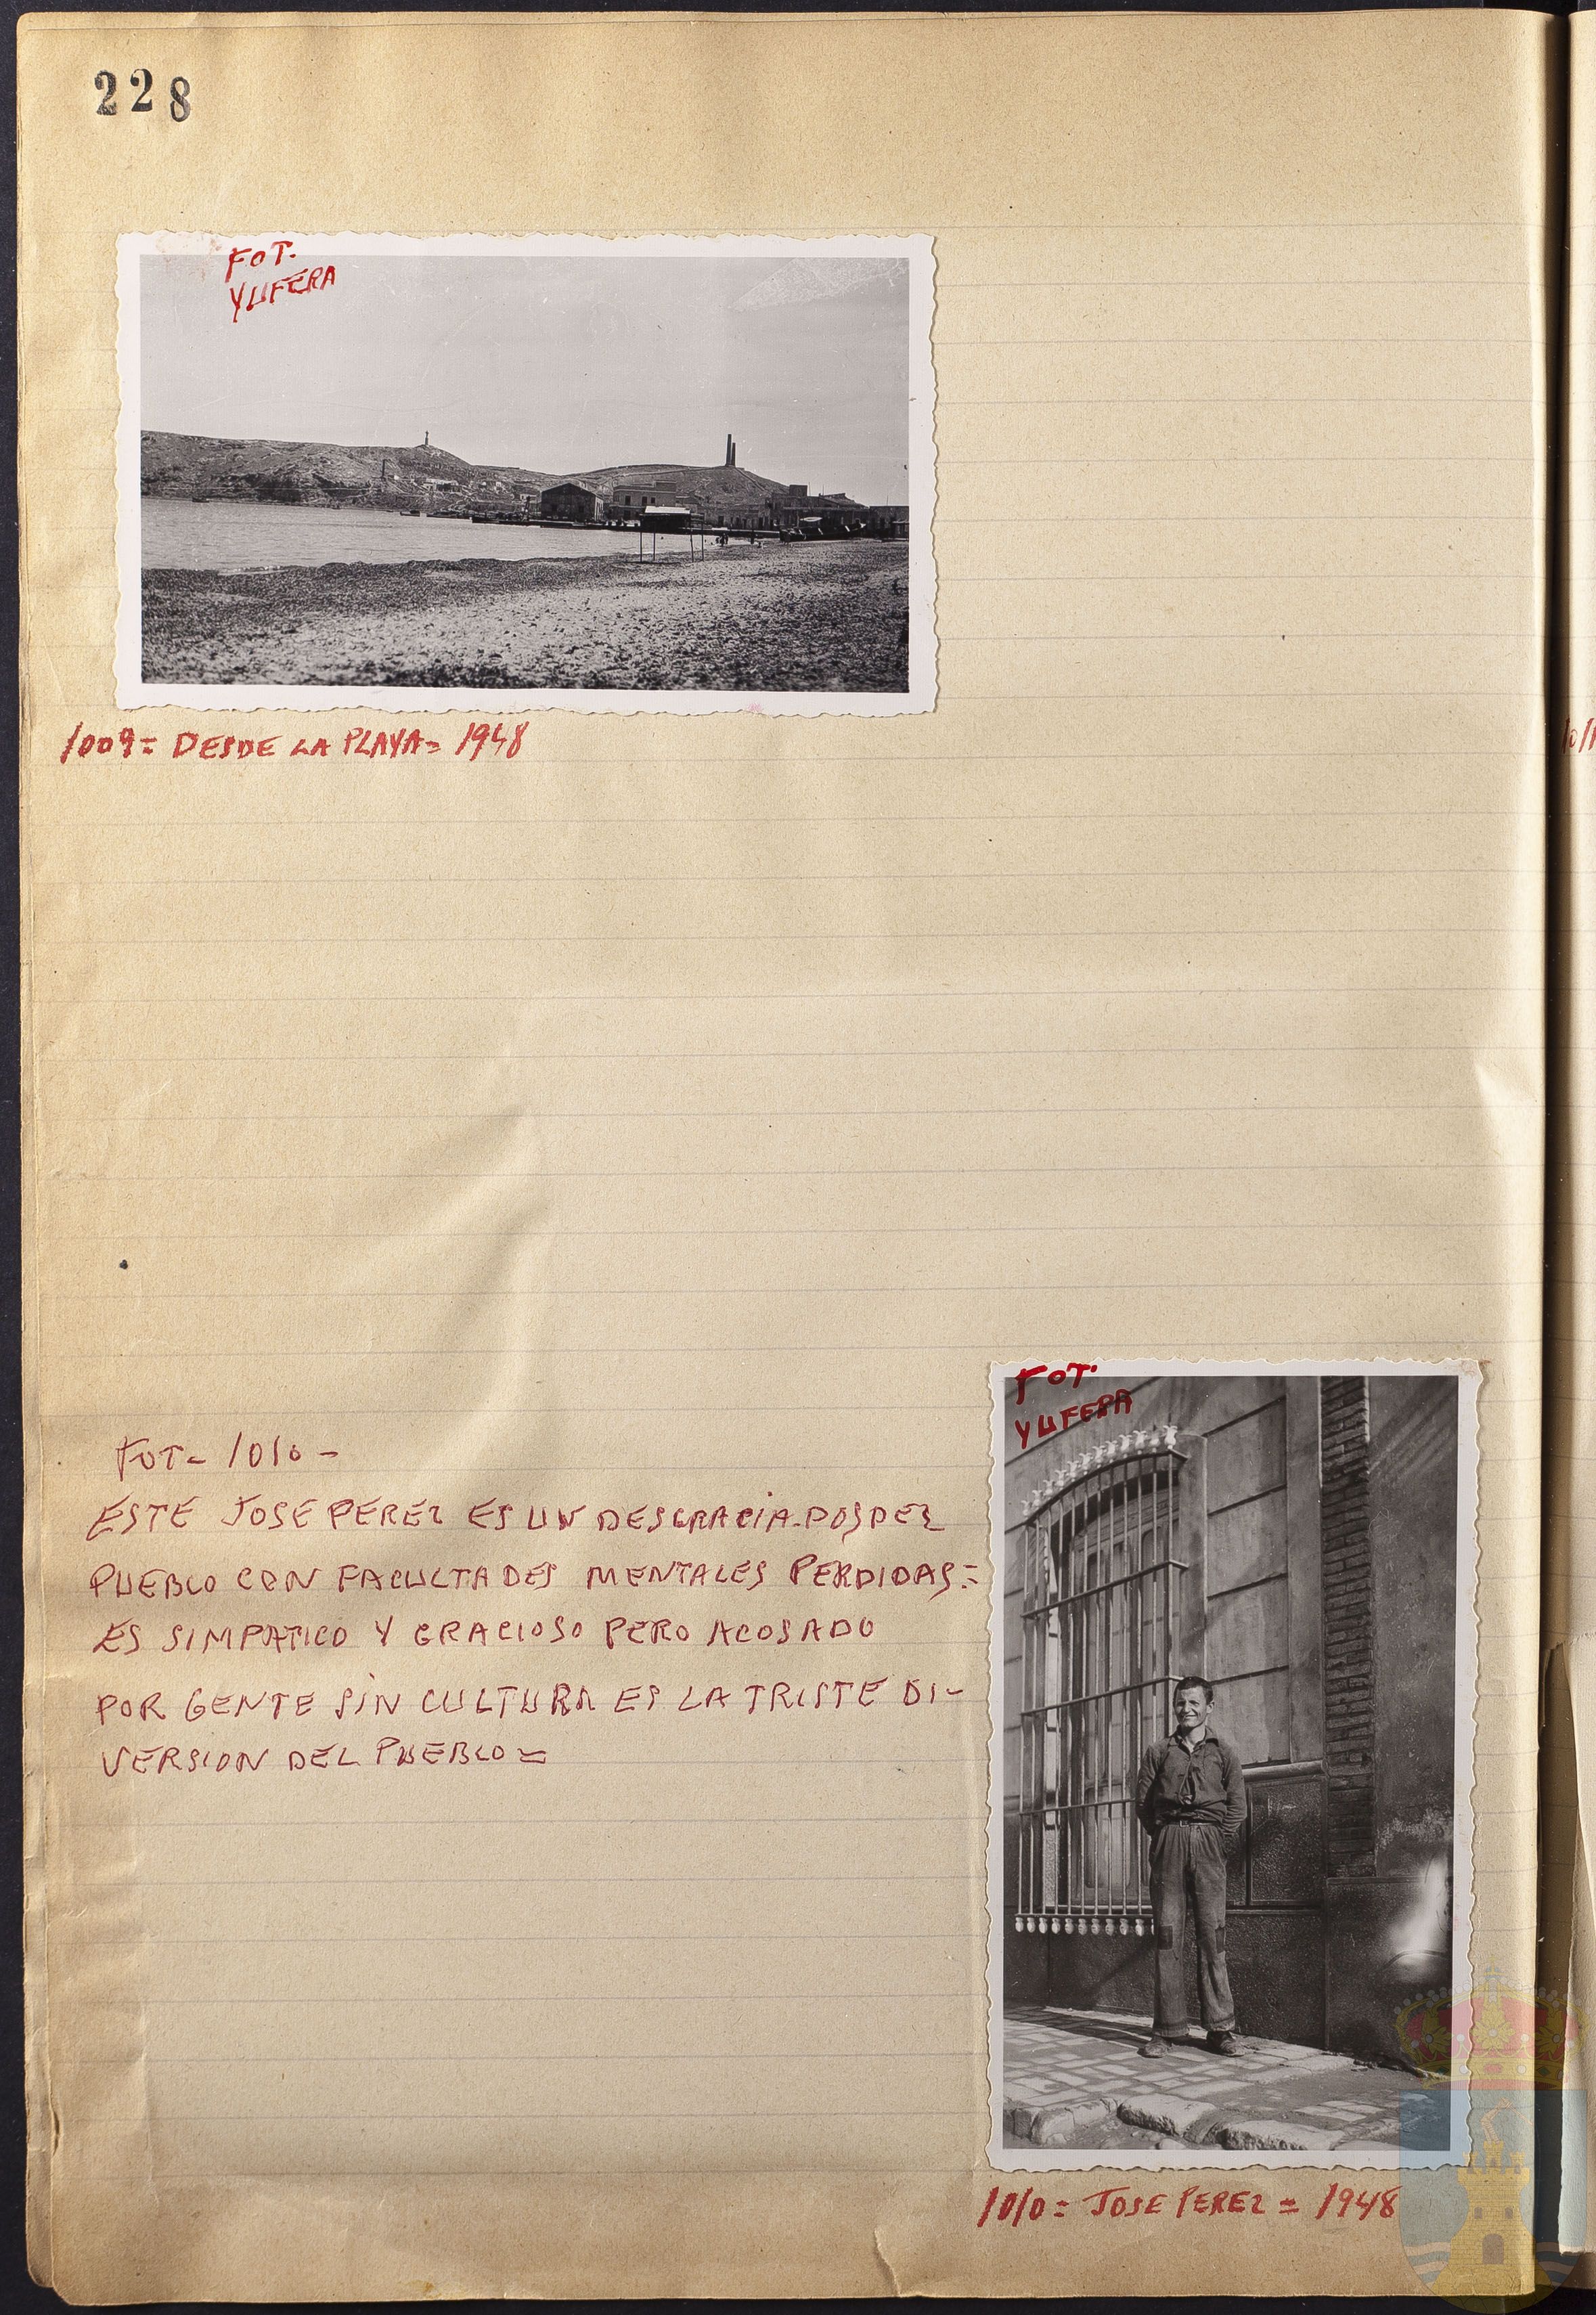 228
FOT.
YUFERA
1009= DESDE LA PLAYA= 1948
FOT.
YUFERA
FOT- 1010 -
ESTE JOSE PEREZ ES UN DESGRACIA-DOS DEL
PUEBLO CON FACULTADES MENTALES PERDIDAS=
ES SIMPATICO Y GRACIOSO PERO ACOSADO
POR GENTE SIN CULTURA ES LA TRISTE DI-
VERSION DEL PUEBLO=
1010= JOSE PEREZ = 1948